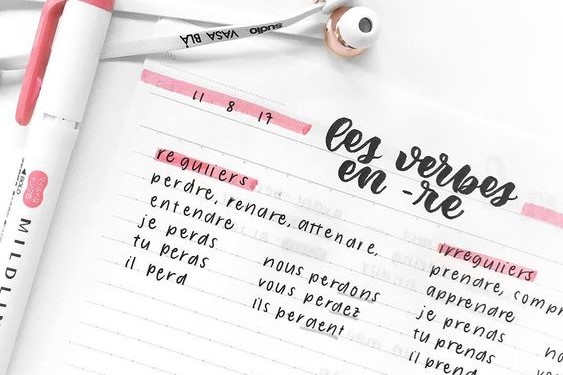 sudio VASA BLÅ
11 8 17
les verbes
en -re
reguliers
perdre, rendre, attendre,
entendre
je perds
tu perds
il perd
nous perdons
vous perdez
ils perdent
irreguliers
prendre, compr
apprendre
je prends
tu prends
il prend
no
BOLD
MILDLIN